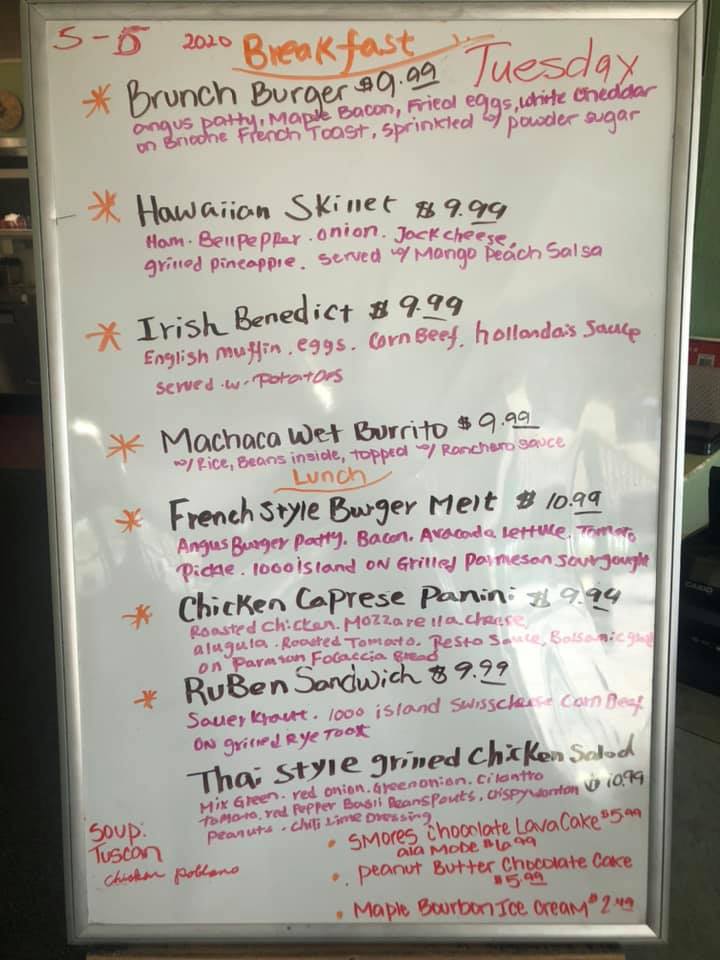 5-5 2020 Breakfast Tuesday
* Brunch Burger $9.99
angus patty, Maple Bacon, Fried eggs, white cheddar
on Brioche French Toast, sprinkled w/ powder sugar
* Hawaiian Skillet $9.99
Ham. Bellpepper. onion. Jack cheese,
grilled pineapple. served w/ Mango Peach Salsa
* Irish Benedict $9.99
English muffin. eggs. Corn Beef. hollandais Sauce
served. w. Potatoes
* Machaca Wet Burrito $9.99
w/ Rice, Beans inside, topped w/ Ranchero sauce
Lunch
* French Style Burger Melt $10.99
Angus Burger Patty. Bacon. Avacada. Lettuce. Tomato
Pickle. 1000 island on Grilled Parmesan sourdought
* Chicken Caprese Panini $9.99
Roasted Chicken. Mozzarella cheese,
alugula. Roasted Tomato. Pesto Sauce, Balsamic
on Parmsan Focaccia Bread
* Ruben Sandwich $9.99
Sauer Kraut. 1000 island Swisscheese Corn Beef
on grilled Rye
Thai Style grilled Chicken Salad
Mix Green. red onion. Green onion. Cilantro $10.99
Tomato. red Pepper Basil Beanspouts. Crispy wonton
Peanuts. Chili Lime Dressing
Soup:
Tuscan
chicken poblano
• Smores Chocolate Lava Cake $5.99
ala Mode $6.99
• Peanut Butter Chocolate Cake
$5.99
• Maple Bourbon Ice Cream $2.49
CASIO